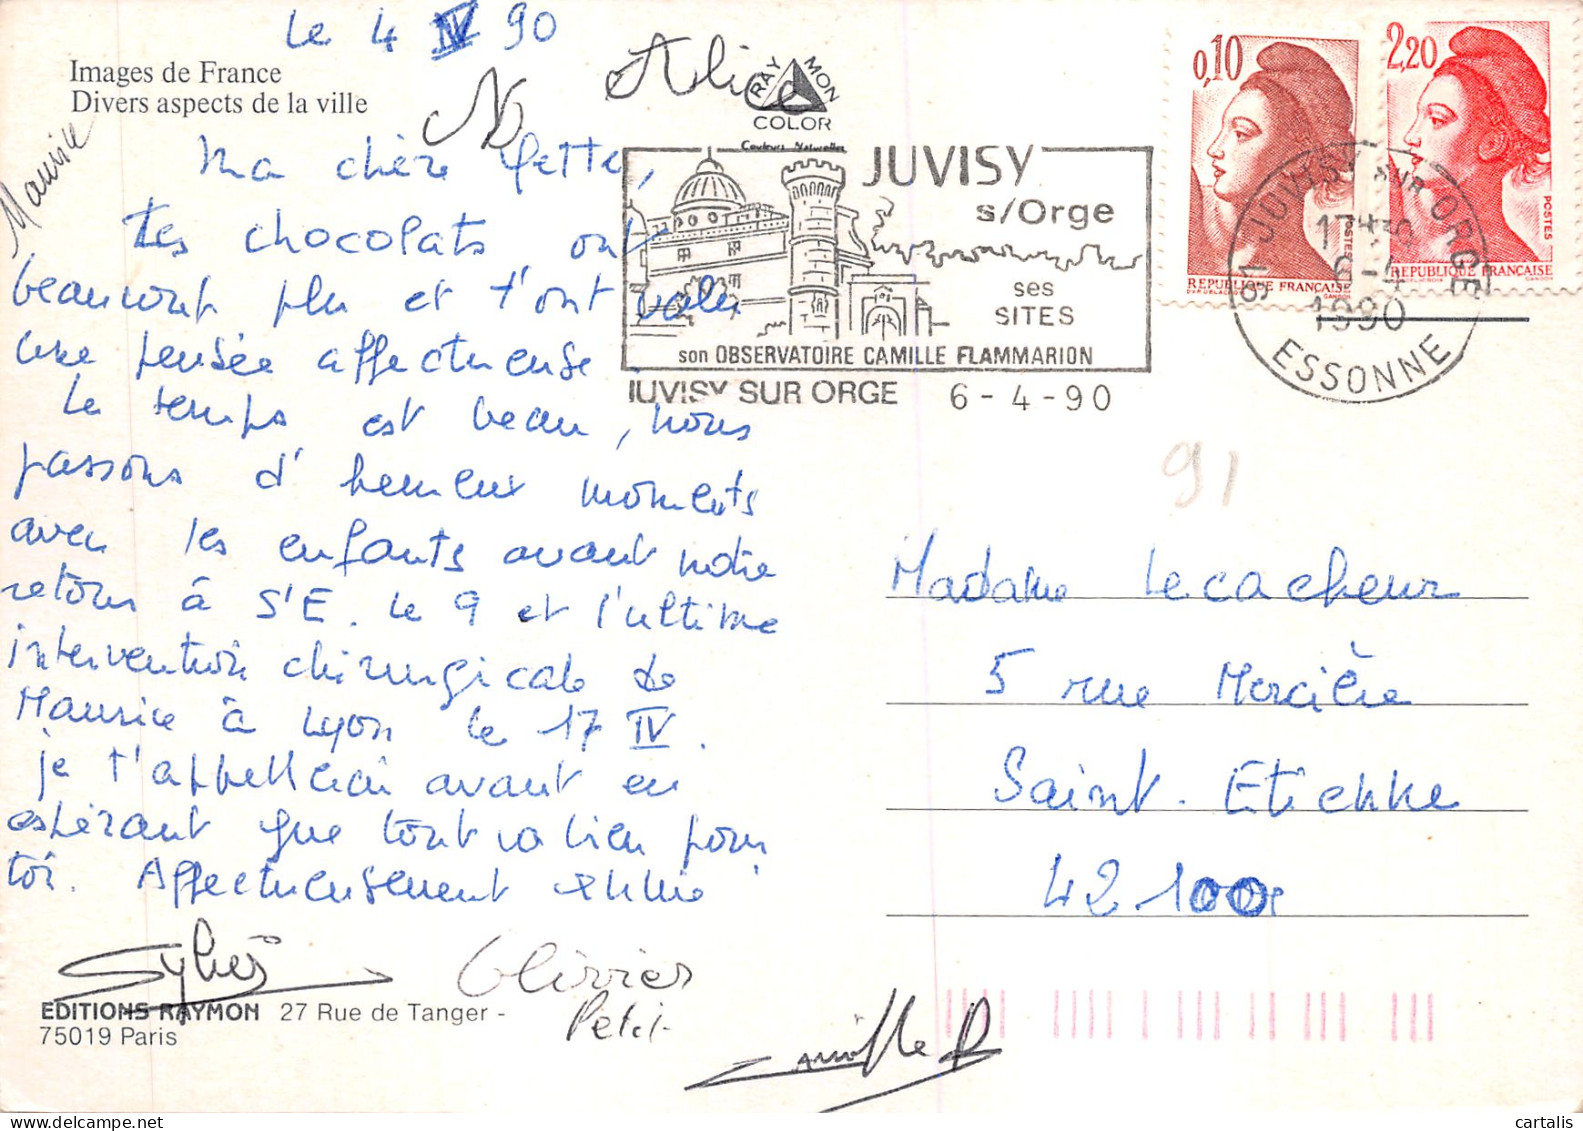 le 4 IV 90
Images de France
Divers aspects de la ville
Maurice
Alice
RAYMON
COLOR
Couleurs Naturelles
Ma chère
Les chocolats ont
beaucoup plu et t'ont valu
une pensée affectueuse.
Le temps est beau, nous
passons d'heureux moments
avec les enfants avant notre
retour à St E. le 9 et l'ultime
intervention chirurgicale de
Maurice à Lyon le 17 IV.
je t'appellerai avant en
espérant que tout va bien pour
toi. Affectueusement
Olivier
Petit
Camille
EDITIONS RAYMON 27 Rue de Tanger -
75019 Paris
JUVISY
s/Orge
ses
SITES
son OBSERVATOIRE CAMILLE FLAMMARION
JUVISY SUR ORGE 6-4-90
0,10
POSTES
REPUBLIQUE FRANÇAISE
2,20
POSTES
REPUBLIQUE FRANÇAISE
91 JUVISY SUR ORGE
6-4
1990
ESSONNE
91
Madame Lecacheur
5 rue Mercière
Saint. Etienne
42100
cartalis